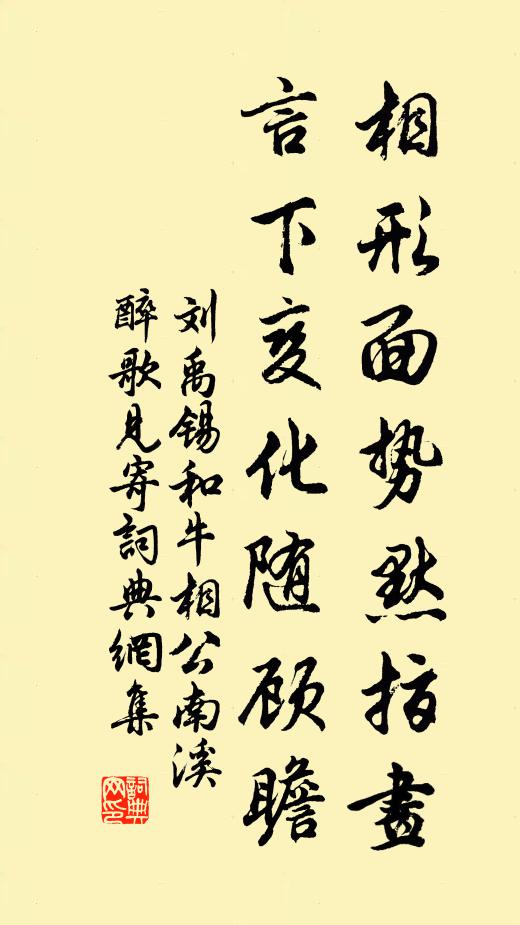 相形面势默指画
言下变化随顾瞻
刘禹锡和牛相公南溪
醉歌见寄词典網集
詞典網印